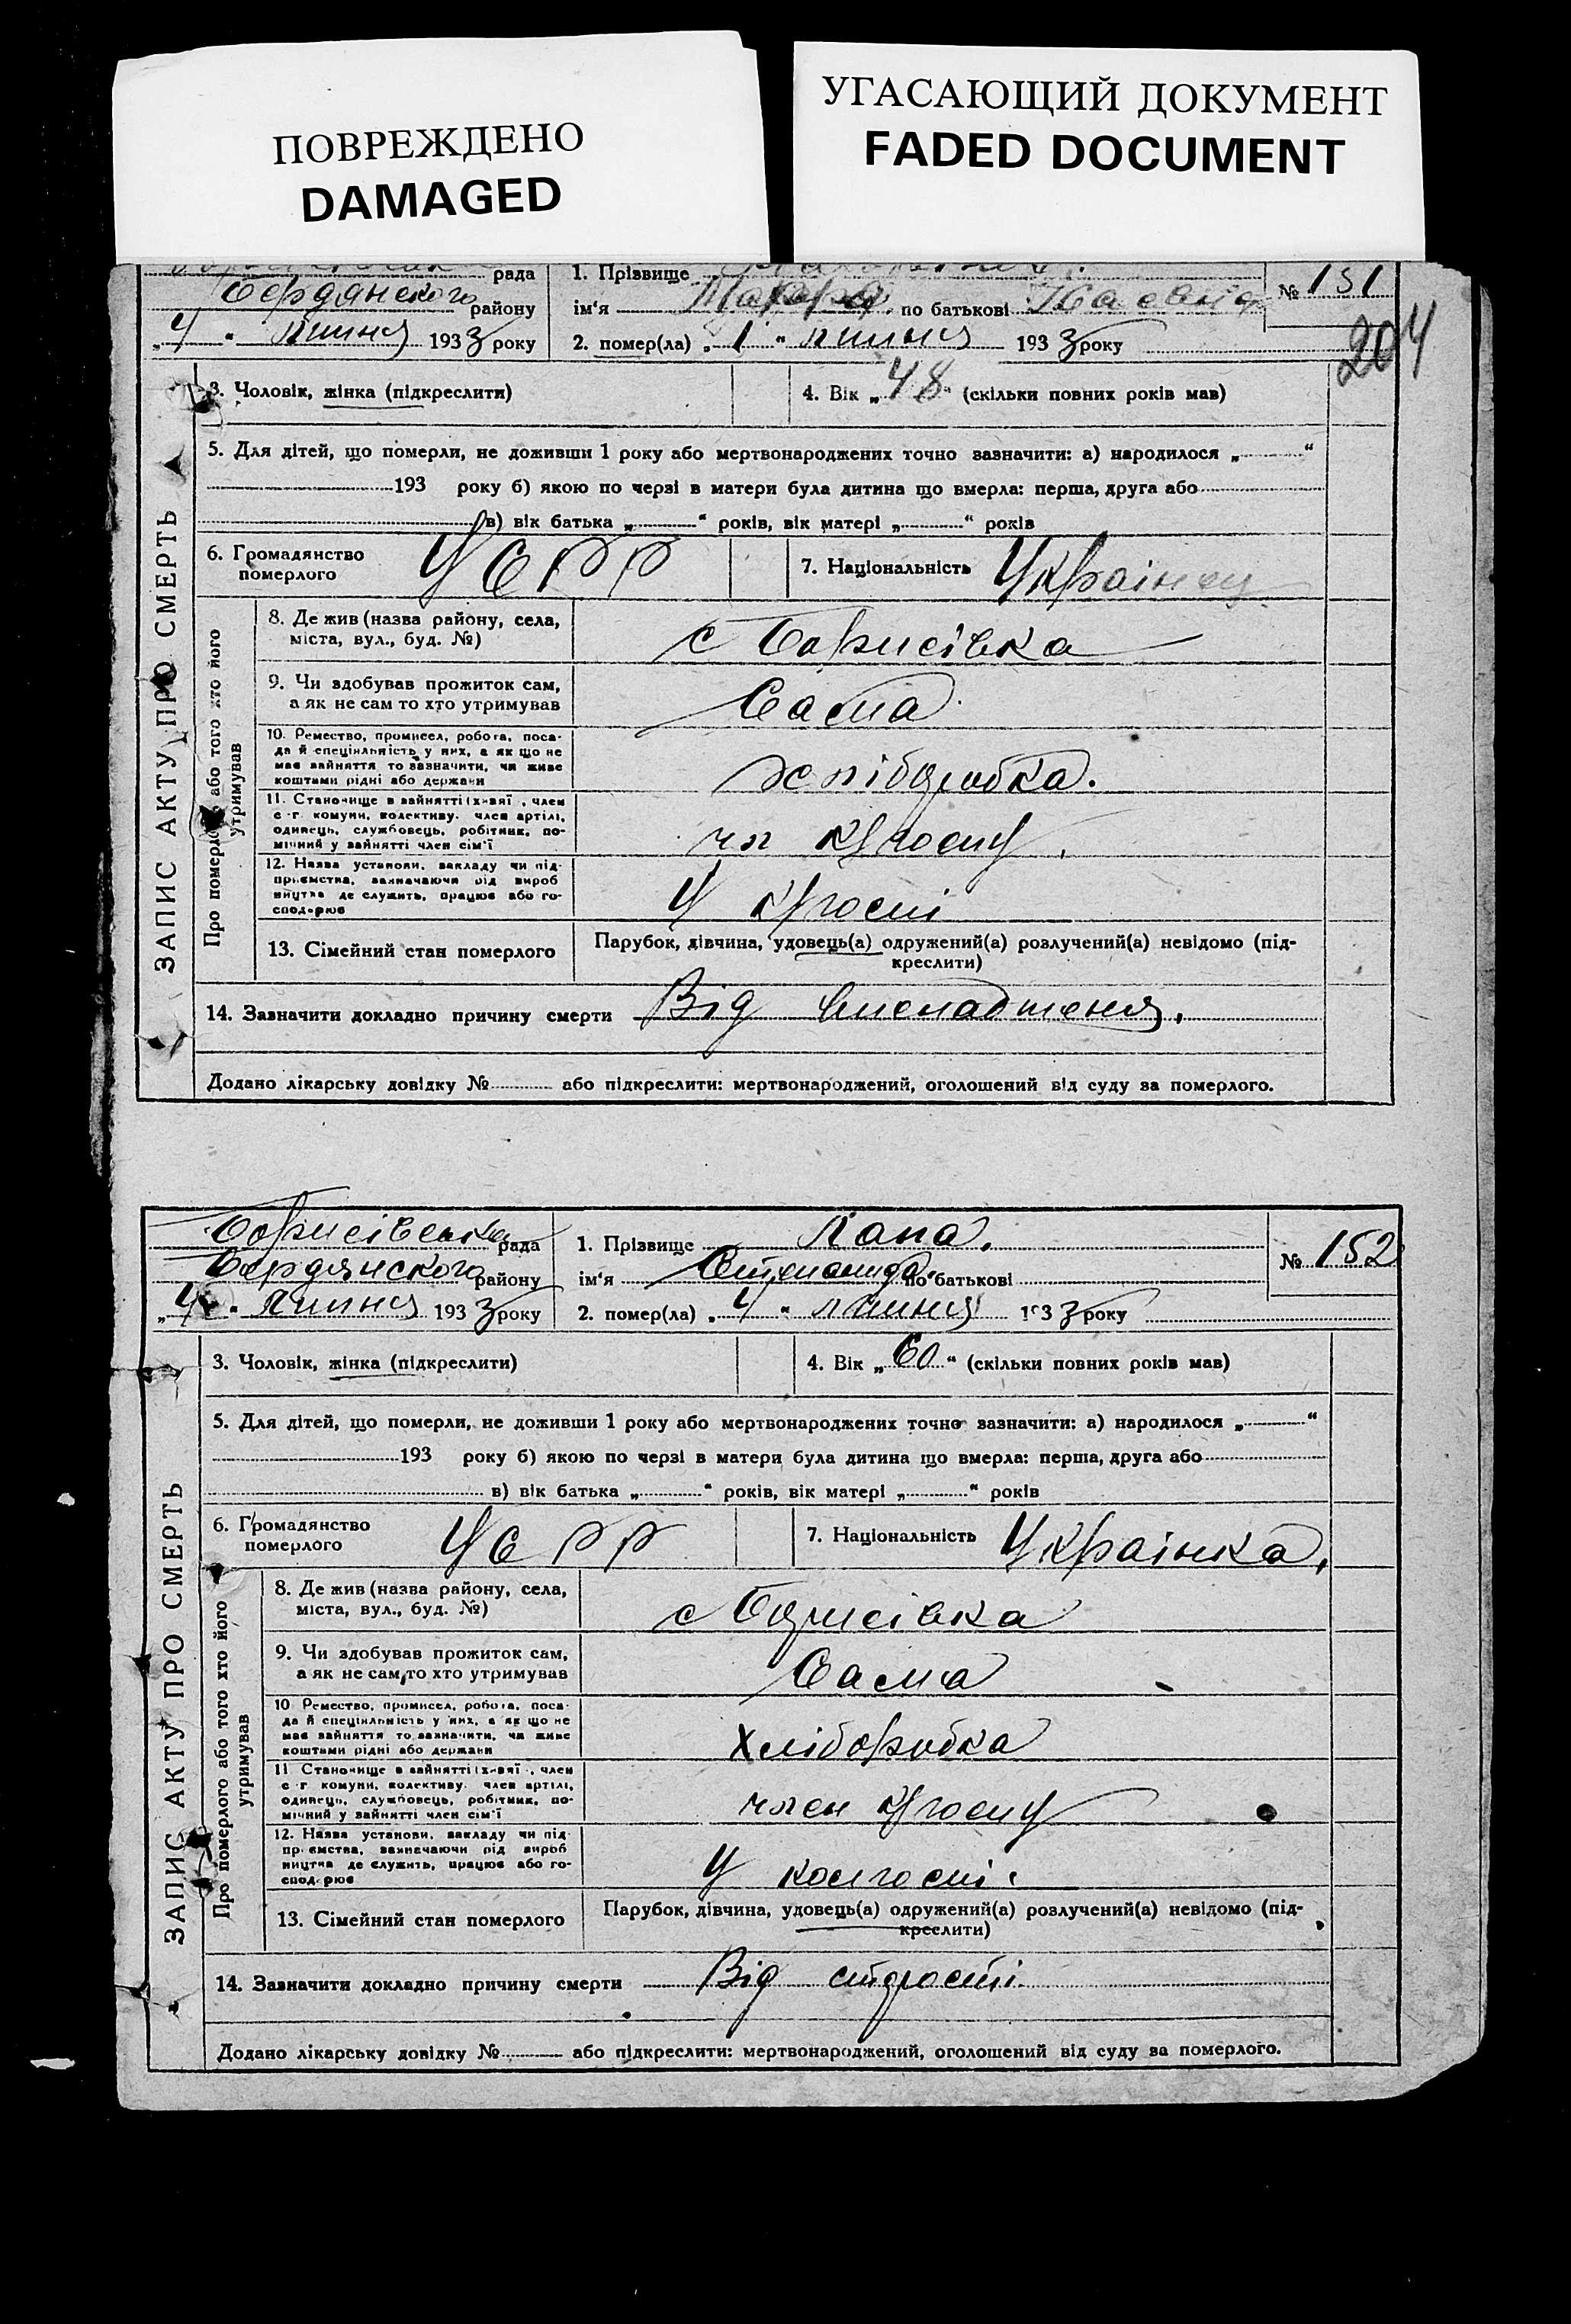 ПОВРЕЖДЕНО
DAMAGED
УГАСАЮЩИЙ ДОКУМЕНТ
FADED DOCUMENT
рада
Бердянского району
"4" липня 1933 року
1. Прізвище
ім'я по батькові
2. помер(ла) "1" липня 1933 року
№ 151
204
ЗАПИС АКТУ ПРО СМЕРТЬ
3. Чоловік, жінка (підкреслити)
4. Вік "48" (скільки повних років мав)
5. Для дітей, що померли, не доживши 1 року або мертвонароджених точно зазначити: а) народилося „ “
193 року б) якою по черзі в матери була дитина що вмерла: перша, друга або
в) вік батька „ “ років, вік матері „ “ років
6. Громадянство
померлого
УСРР
7. Національність
Українец
Про померлого або того хто його
утримував
8. Де жив (назва району, села,
міста, вул., буд. №)
с Борисівка
9. Чи здобував прожиток сам,
а як не сам то хто утримував
Сама
10. Ремество, промисел, робота, поса-
да й спеціяльність у них, а як що не
має зайняття то зазначити, чи живе
коштами рідні або держави
хліборобка.
11. Становище в зайнятті (хазяї, член
с.-г. комуни, колективу, член артілі,
одинець, службовець, робітник, по-
мічний у зайнятті член сім'ї
чл к/госпу.
12. Назва установи, закладу чи під-
приємства, зазначаючи рід вироб
ництва де служить, працює або го-
сподарює
У к/госпі
13. Сімейний стан померлого
Парубок, дівчина, удовець(а) одружений(а) розлучений(а) невідомо (під-
креслити)
14. Зазначити докладно причину смерти Від
Додано лікарську довідку № або підкреслити: мертвонароджений, оголошений від суду за померлого.
Борисівська рада
Бердянского району
"4" липня 1933 року
1. Прізвище Лапа.
ім'я Степанида по батькові
2. помер(ла) "4" липня 1933 року
№ 152
ЗАПИС АКТУ ПРО СМЕРТЬ
3. Чоловік, жінка (підкреслити)
4. Вік "60" (скільки повних років мав)
5. Для дітей, що померли, не доживши 1 року або мертвонароджених точно зазначити: а) народилося „ “
193 року б) якою по черзі в матери була дитина що вмерла: перша, друга або
в) вік батька „ “ років, вік матері „ “ років
6. Громадянство
померлого
УСРР
7. Національність
Українка,
Про померлого або того хто його
утримував
8. Де жив (назва району, села,
міста, вул., буд. №)
с Борисівка
9. Чи здобував прожиток сам,
а як не сам, то хто утримував
Сама
10 Ремество, промисел, робота, поса-
да й спеціяльність у них, а як що не
має зайняття то зазначити, чи живе
коштами рідні або держави
Хліборобка
11 Становище в зайнятті (хазяї, член
с.-г. комуни, колективу, член артілі,
одинець, службовець, робітник, по-
мічний у зайнятті член сім'ї
член к/госпу
12. Назва установи, закладу чи під-
приємства, зазначаючи рід вироб
ництва де служить, працює або го-
сподарює
У колгоспі.
13. Сімейний стан померлого
Парубок, дівчина, удовець(а) одружений(а) розлучений(а) невідомо (під-
креслити)
14. Зазначити докладно причину смерти Від старості
Додано лікарську довідку № або підкреслити: мертвонароджений, оголошений від суду за померлого.